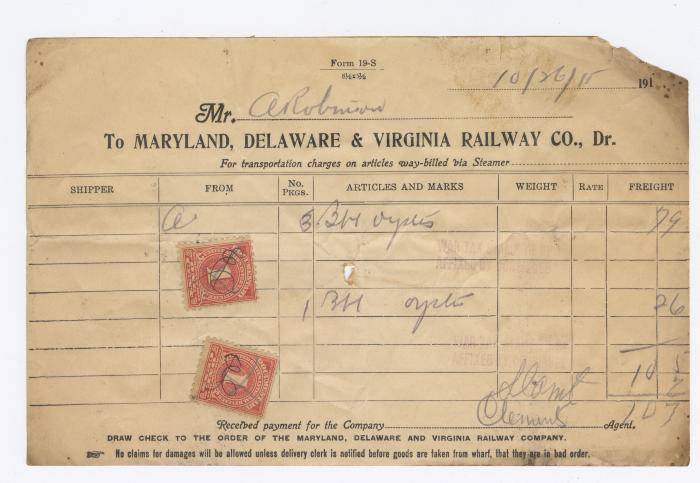 Form 19-S
8½x5½
10/26/15 191
Mr. A Robinson
To MARYLAND, DELAWARE & VIRGINIA RAILWAY CO., Dr.
For transportation charges on articles way-billed via Steamer
SHIPPER FROM No. PKGS. ARTICLES AND MARKS WEIGHT RATE FREIGHT
3 Bbl oysters 79
1 Bbl oysters 26
10 5
2
107
Clements
Received payment for the Company Agent.
DRAW CHECK TO THE ORDER OF THE MARYLAND, DELAWARE AND VIRGINIA RAILWAY COMPANY.
No claims for damages will be allowed unless delivery clerk is notified before goods are taken from wharf, that they are in bad order.